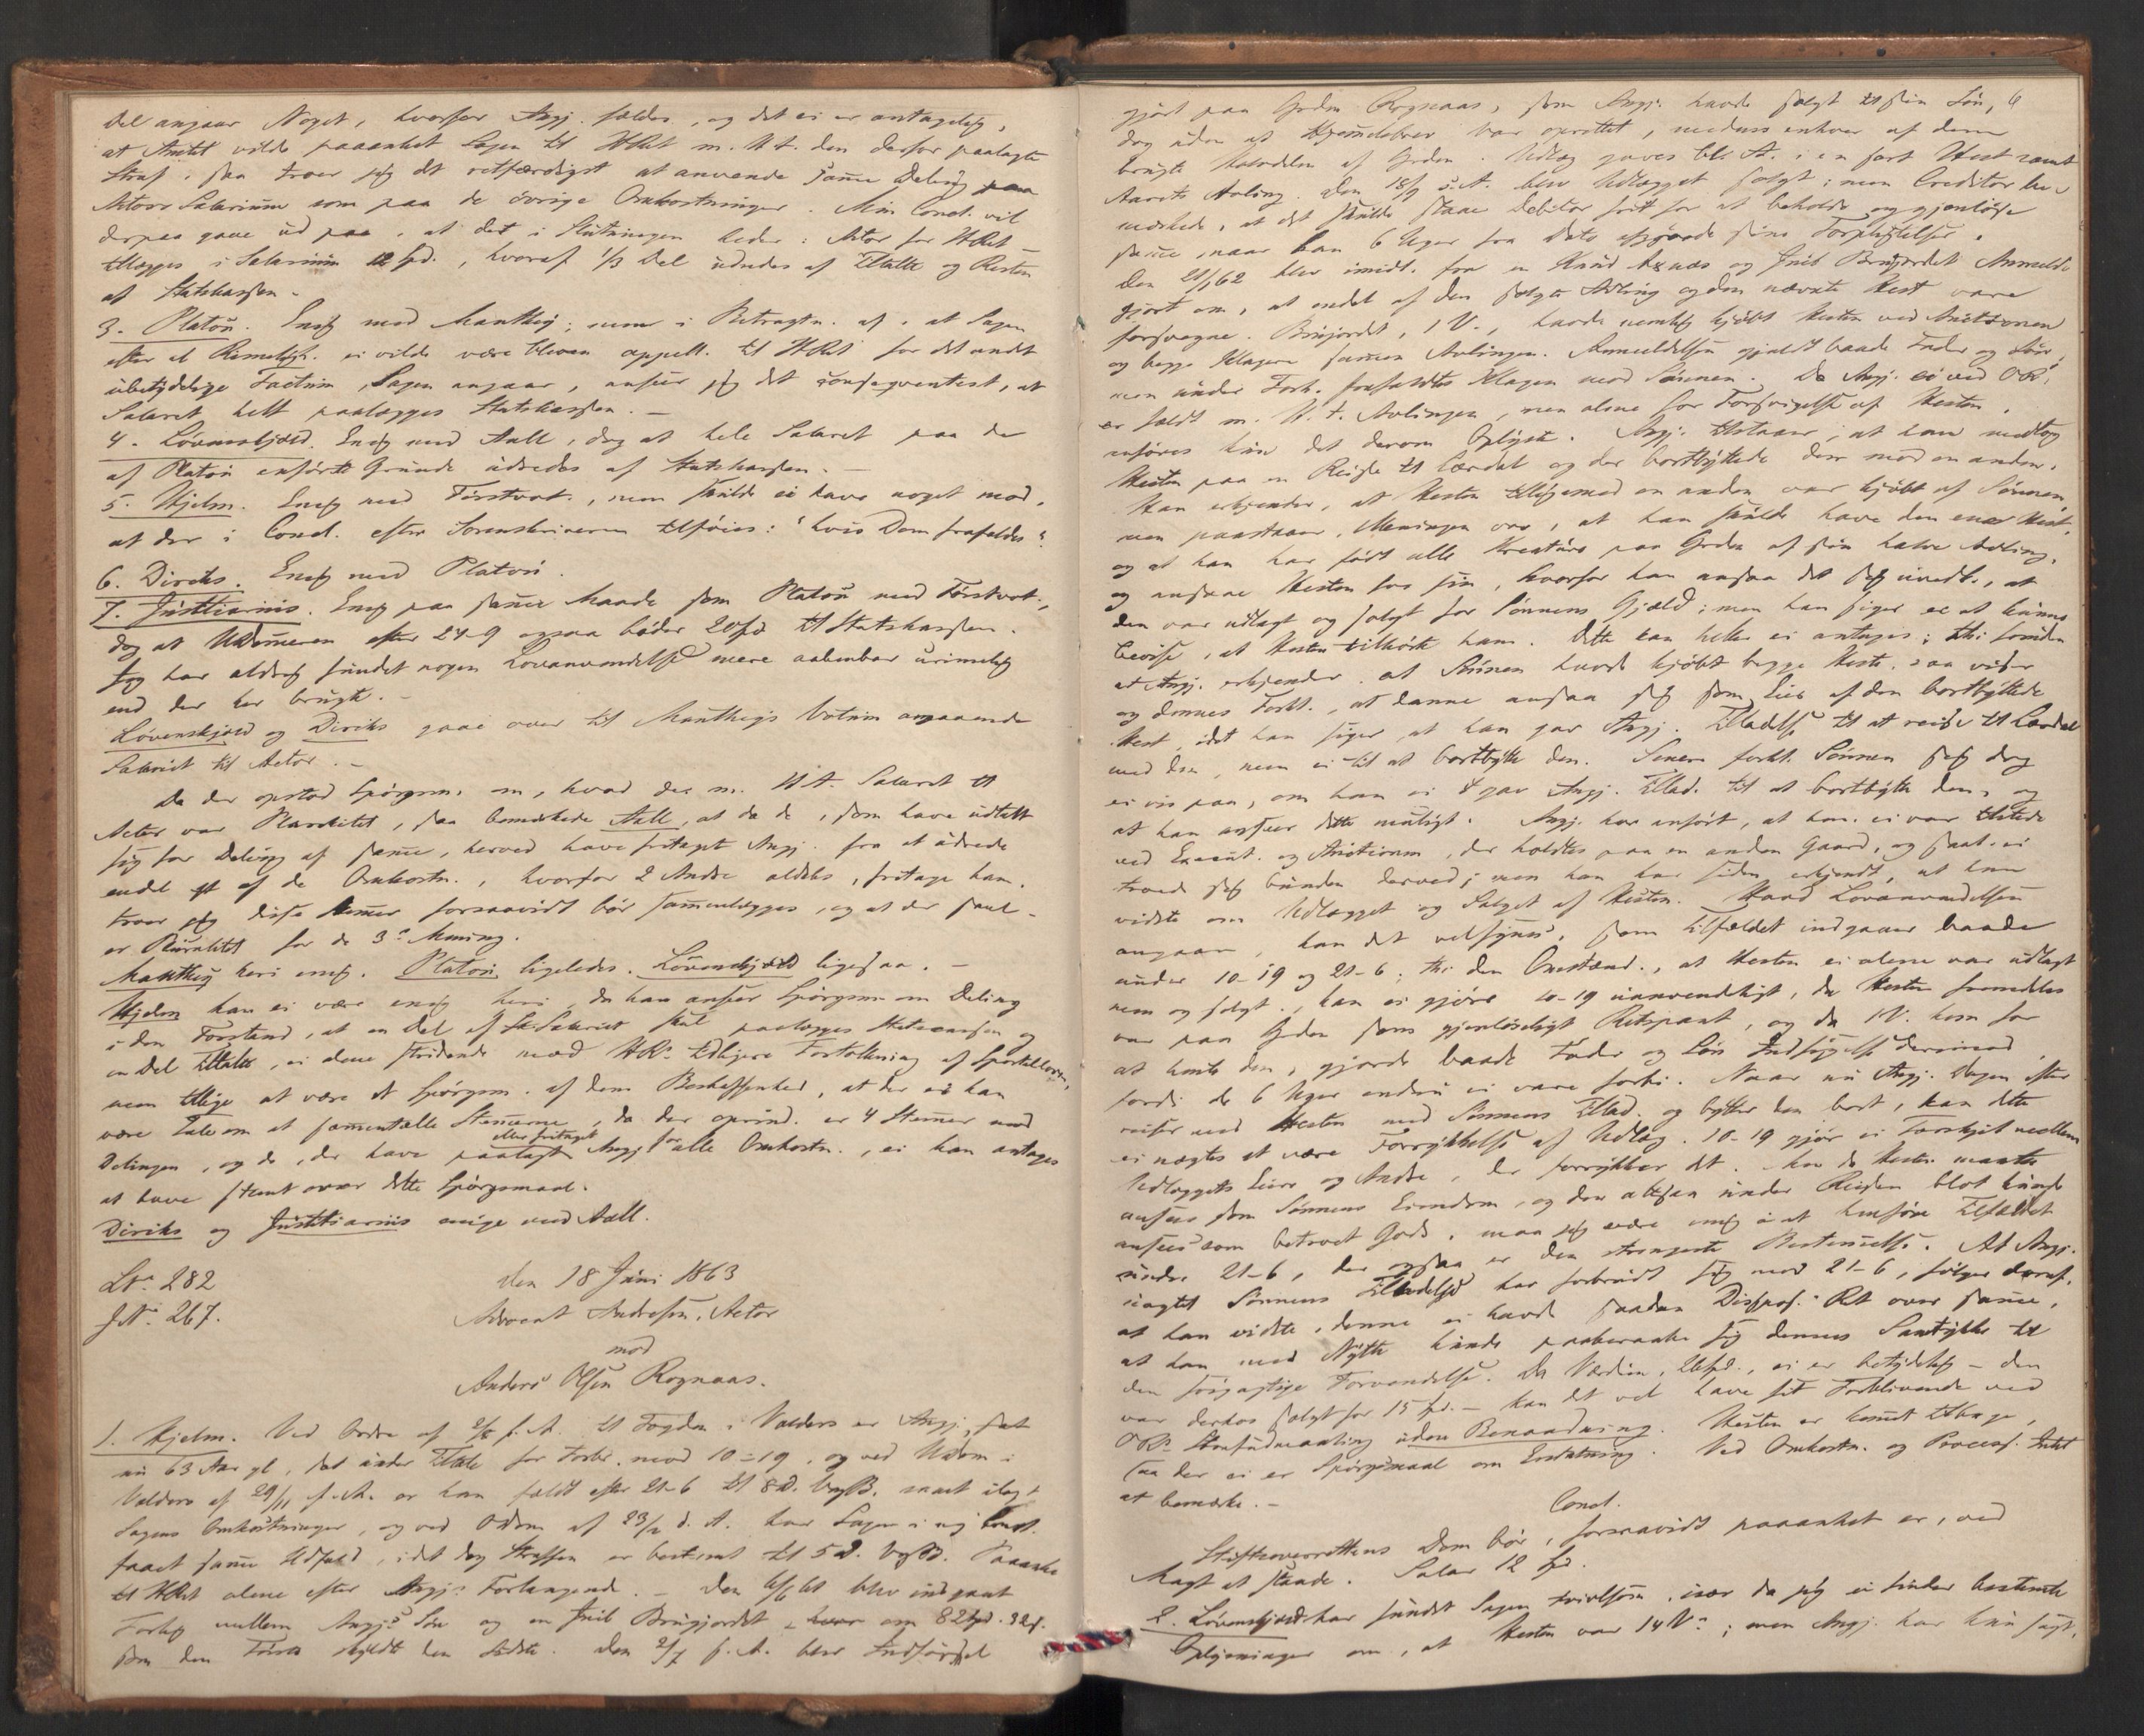 Del angaar Noget, hvorfor Angj. fældes, og det ei er antageligt,
at Amtet vilde paaanket Sagen til HRet m. H. t. den derfor paalagte
Straf, saa troer jeg det retfærdigst at anvende samme Deling paa
Actors Salarium som paa de øvrige Omkostninger. Min Concl. vil
derpaa gaae ud paa, at det i Slutningen heder: Actor for HRet
tillægges i Salarium 12 Spd., hvoraf 1/3 Del udredes af Tiltalte og Resten
af Statskassen.
3. Platou. Enig med Manthey; men i Betragtn. af, at Sagen
efter al Rimeligh. ei vilde være bleven appell. til HRet for det andet
ubetydelige Factum, Sagen angaar, anseer jeg det conseqventest, at
Salaret helt paalægges Statskassen. —
4. Løvenskjold. Enig med Aall, dog at hele Salaret paa de
af Platou anførte Grunde udredes af Statskassen. —
5. Hjelm. Enig med Førstvot., men skulde ei have noget mod,
at der i Concl. efter Sorenskriveren tilføies: "hvis Dom frafaldes".
6. Diriks. Enig med Platou.
7. Justitiarius. Enig paa samme Maade som Platou med Førstvot.,
dog at UDommeren efter 24-9 ogsaa bøder 20 Spd. til Statskassen.
Jeg har aldrig fundet nogen Lovanvendelse mere aabenbar urimelig
end der her brugte. —
Løvenskjold og Diriks gaae over til Mantheys Votum angaaende
Salariet til Actor. —
Da der opstod Spørgsm. om, hvad der m. H. t. Salaret til
Actor var Pluralitet, saa bemærkede Aall, at da de, som have udtalt
sig for Deling af samme, herved have fritaget Angj. fra at udrede
endel af de Omkostn., hvorfor 2 Andre aldeles fritage ham,
troer jeg disse Stemmer forsaavidt bør sammenlægges, og at der saal.
er Pluralitet for de 3s Mening.
Manthey heri enig. Platou ligeledes. Løvenskjold ligesaa. —
Hjelm kan ei være enig heri, da han anseer Spørgsm. om Deling
i den Forstand, at en Del af Salariet skal paalægges Statscassen og
en Del Tiltalte, ei alene stridende mod HRs tidligere Fortolkning af Sportelloven,
men tillige at være et Spørgsm. af den Beskaffenhed, at der ei kan
være Tale om at sammentælle Stemmerne, da der oprind. er 4 Stemmer mod
Delingen, og de, der have paalagt eller fritaget Angj. for alle Omkostn., ei kan antages
at have stemt over dette Spørgsmaal.
Diriks og Justitiarius enige med Aall.
Lno. 282 den 18 Juni 1863
JNo. 267. Advocat Andresen, Actor
mod
Anders Olsen Rognaas.
1. Hjelm. Ved Ordre af 2/8 f. A. til Fogden i Valders er Angj., sat
nu 63 Aar gl., sat under Tiltale for Forbr. mod 10-19, og ved UDom i
Valders af 29/11 f. A. er han fældt efter 21-6 til 8 D. VogB. samt ilagt
Sagens Omkostninger, og ved ODom af 23/2 d. A. har Sagen i sig Concl.
faaet samme Udfald, idet dog Straffen er bestemt til 5 D. VogB. Paaanket
til HRet alene efter Angj.s Forlangende. — Den 6/6 61 blev indgaaet
Forlig mellem Angj.s Søn og en Iver Brugjordet om 82 Spd. 32 s.
som den Første skyldte den Sidste. Den 2/7 s. A. blev Indførsel
gjort paa Grdn Rognaas, som Angj. havde solgt til sin Søn,
dog uden at Hjemmelsbrev var oprettet, medens enhver af dem
brugte Halvdelen af Grden. Udlæg gaves bl. A. i en sort Hest samt
Aarets Avling. Den 18/9 s. A. blev Udlægget solgt; men Creditor be-
mærkede, at det skulde staae Debitor frit for at beholde og gjenløse
samme naar han 6 Uger fra Dato afgjorde sine Forpligtelser.
Den 21/1 62 blev imidl. fra en Knud Axnæs og Iver Brugjordet Anmeldelse
gjort om, at endel af den solgte Avling og den nævnte Hest vare
forsvegne. Brugjordet, 1 V., havde nemlig kjøbt Hesten ved Auctionen
og begge Klagere sammen Avlingen. Anmeldelsen gjældt baade Fader og Søn,
men under Forh. frafaldtes Klagen mod Sønnen. Da Angj. ei ved OR.
er fældt m. H. t. Avlingen, men alene for Forsvigelse af Hesten,
anføres kun det derom Oplyste. Angj. tilstaaer, at han medtog
Hesten paa en Reise til Lærdal og der bortbyttede den mod en anden.
Han erkjender, at Hesten tilligemed en anden var kjøbt af Sønnen,
men paastaaer, Meningen var, at han skulde have den ene Hest,
og at han har født alle Kreature paa Grden af sin halve Avling,
og ansaae Hesten for sin, hvorfor han ansaa det sig uvedk., at
den var udlagt og solgt for Sønnens Gjæld; men han siger ei at kunne
bevise, at Hesten tilhørte ham. Dette kan heller ei antages; thi foruden
at Angj. erkjender, at Sønnen havde kjøbt begge Heste, saa vider
og dennes Forkl., at denne ansaa sig som Eier af den bortbyttede
Hest, idet han siger, at han gav Angj. Tilladelse til at reise til Lærdal
med den, men ei til at bortbytte den. Senere forkl. Sønnen sig dog
ei vis paa, om han ei gav Angj. Tillad. til at bortbytte den, og
at han anseer dette muligt. Angj. har anført, at han ei var tilstede
ved Execut. og Auctionen, der holdtes paa en anden Gaard, og saal. ei
troede sig bunden derved; men han har siden erkjendt, at han
vidste om Udlægget og Salget af Hesten. Hvad Lovanvendelsen
angaaer, kan det vel synes, som Tilfældet indgaaer baade
under 10-19 og 21-6; thi den Omstænd., at Hesten ei alene var udlagt
men og solgt, kan ei gjøre 10-19 uanvendeligt, da Hesten fremdeles
var paa Grden som gjenløseligt Retspant, og da 1 V. kom for
at hente den, gjorde baade Fader og Søn Indsigelse derimod
fordi de 6 Uger endnu ei vare forbi. Naar nu Angj. Dagen efter
reiser med Hesten med Sønnens Tillad. og bytter den bort, kan dette
ei nægtes at være Forrykkelse af Udlæg. 10-19 gjør ei Forskjel mellem
Udlæggets Eiere og Andre, der forrykker det. Men da Hesten maatte
ansees som Sønnens Eiendom, og den altsaa under Reisen blot kunde
ansees som betroet Gods, maa jeg være enig i at henføre Tilfældet
under 21-6, der ogsaa er den strengeste Bestemmelse. At Angj.
uagtet Sønnens Tilladelse har forbrudt sig mod 21-6, følger deraf,
at han vidste, denne ei havde saadan Disposs. Ret over samme,
at han med Nytte kunde paaberaabe sig dennes Samtykke til
den svigagtige Forvendelse. Da Værdien, 26 Spd., ei er betydelig — den
var derhos solgt for 15 Spd. — kan det vel have sit Forblivende ved
ORs Strafudmaaling uden Benaadning. Hesten er kommet tilbage,
saa der ei er Spørgsmaal om Erstatning. Ved Omkostn. og Procesf. Intet
at bemærke. —
Concl.
Stiftsoverrettens Dom bør, forsaavidt paaanket er, ved
Magt at stande. Salar 12 Spd.
2. Løvenskjold har fundet Sagen tvivlsom, især da jeg ei finder bestemte
Oplysninger om, at Hesten var 14 Ns; men Angj. har kun sagt,